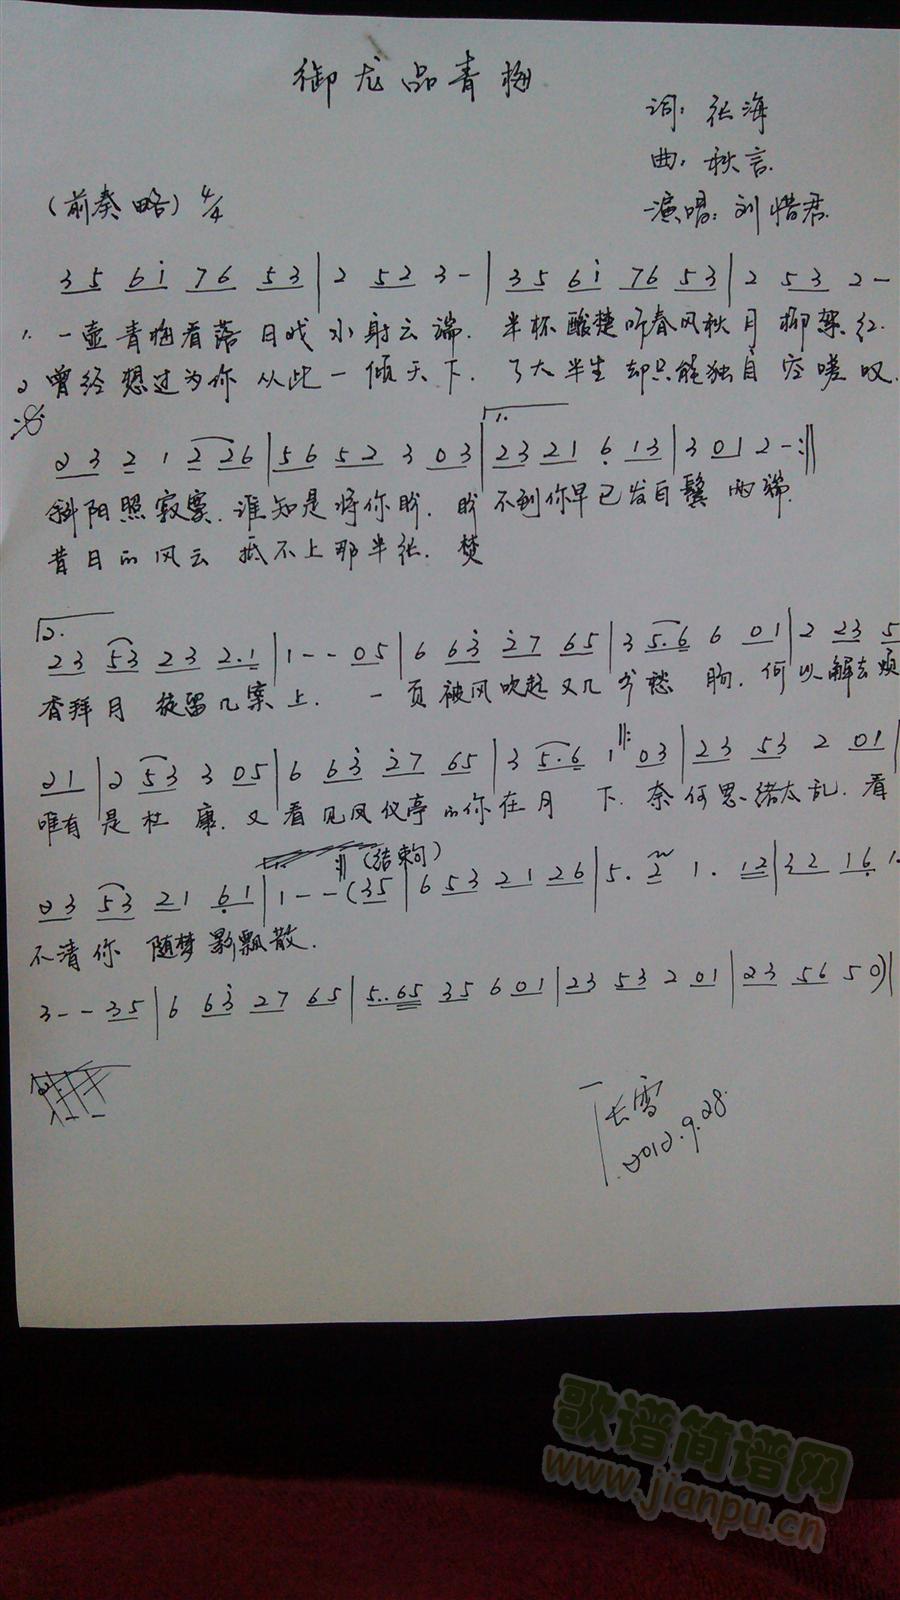 御龙品青梅
词：张海
曲：秋言
(前奏略) 4/4
演唱：刘惜君
3 5 6 i 7 6 5 3 | 2 5 2 3 - | 3 5 6 i 7 6 5 3 | 2 5 3 2 -
1. 一壶青梅看落日戏水射云端. 半杯酸楚听春风秋月柳絮红.
2 曾经想过为你从此一倾天下. 了大半生却只能独自空嗟叹.
1.
2 3 2 1 2 2 6 | 5 6 5 2 3 0 3 | 2 3 2 1 6 1 3 | 3 0 1 2 - :||
斜阳照寂寞. 谁知是将你盼. 盼不到你早已发白鬓两端.
昔日的风云抵不上那半张. 焚
2.
2 3 5 3 2 3 2 . 1 | 1 - - 0 5 | 6 6 3 2 7 6 5 | 3 5 . 6 6 0 1 | 2 2 3 5
香拜月 捉留几案上. 一页被风吹起又几多愁肠. 何以解去烦
2 1 | 2 5 3 3 0 5 | 6 6 3 2 7 6 5 | 3 5 . 6 1 ||: 0 3 | 2 3 5 3 2 0 1 |
唯有是杜康. 又看见凤仪亭的你在月下. 奈何思绪太乱. 看
:|| (结束句)
2 3 5 3 2 1 6 1 | 1 - - (3 5 | 6 5 3 2 1 2 6 | 5 . 2 1 . 1 2 | 3 2 1 6 1 .
不清你 随梦影飘散.
3 - - 3 5 | 6 6 3 2 7 6 5 | 5 . . 6 5 3 5 6 0 1 | 2 3 5 3 2 0 1 | 2 3 5 6 5 0) |
长雪
2012.9.28.
歌谱简谱网
www.jianpu.cn